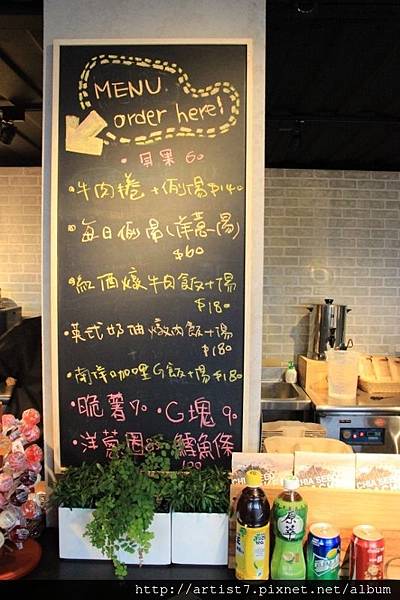 MENU
order here!
貝果 60
牛肉捲 + 例湯 $140
每日例湯(洋蔥湯)
$60
紅酒燉牛肉飯+湯
$180
英式奶油燉肉飯+湯
$180
南洋咖哩G飯+湯 $180
脆薯 70 G塊 90
洋蔥圈 80 鱈魚條
100
CHIA SEED
原萃
http://artist7.pixnet.net/album